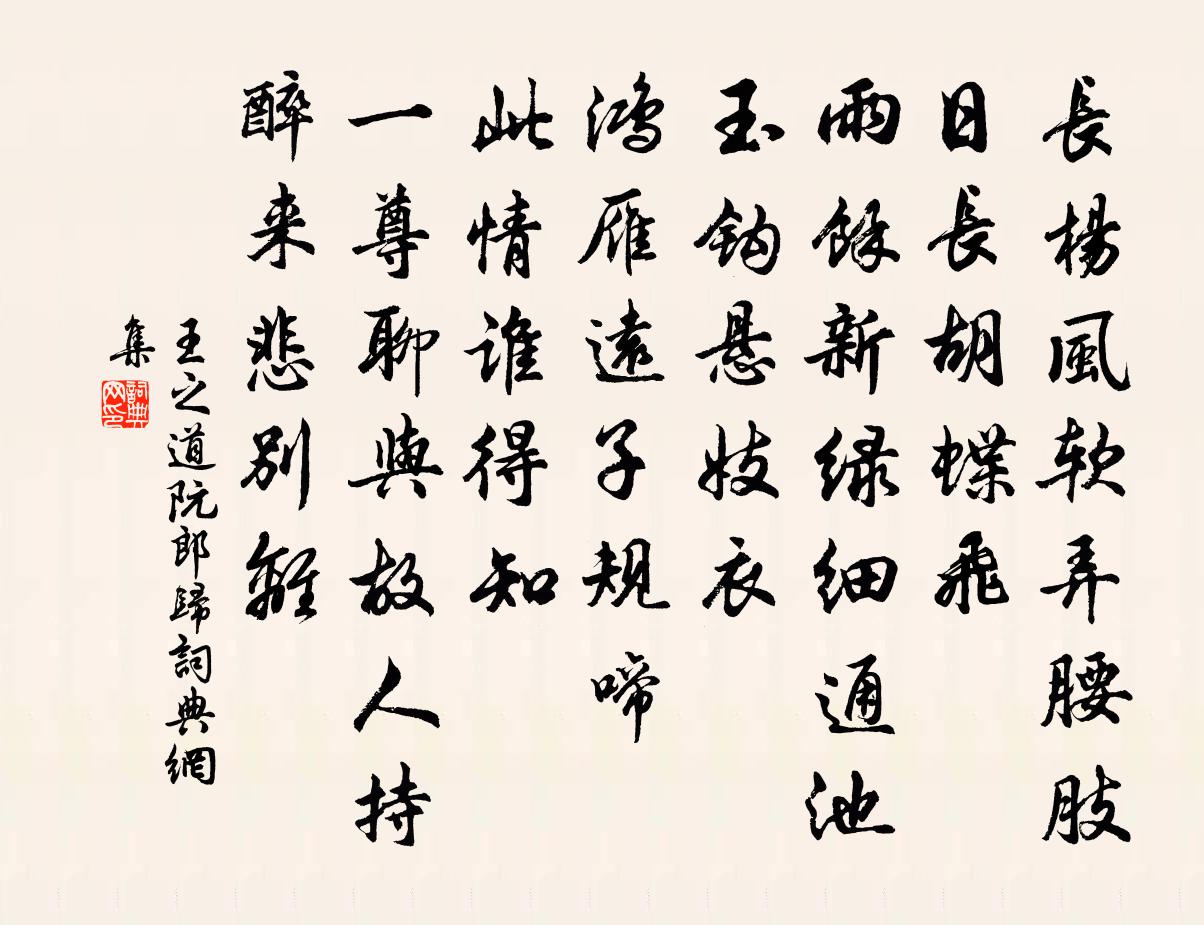 長楊風软弄腰肢
日長胡蝶飛
雨餘新绿细通池
玉钩悬妓衣
鸿雁遠子規啼
此情谁得知
一尊聊與故人持
醉来悲别離
王之道阮郎歸詞典網
集
詞典
网印